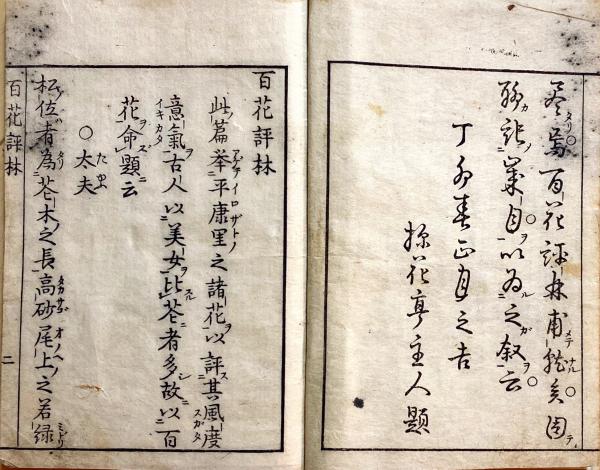 焉百花評林甫就矣因
以為之叙云
丁卯春正月之吉
花亭主人題
百花評林
此篇挙平康里之諸花以評其風度
意氣古人以美女比花者多故以百
花命題云
○太夫
松位者為花木之長高砂尾上之若緑
百花評林 二